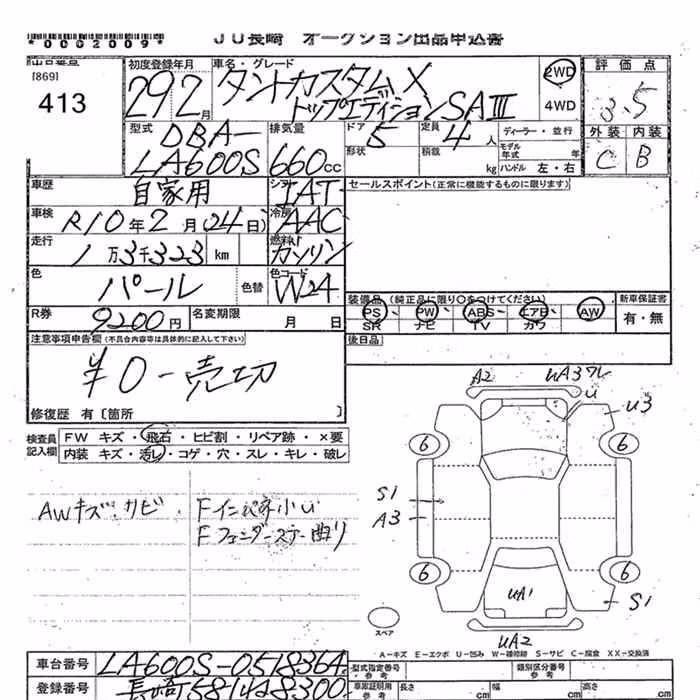 *0002009*
JU長崎 オークション出品申込書
[869]
413
初度登録年月
29 2月
車名・グレード
タントカスタムX
トップエディションSAⅢ
2WD
4WD
評価点
3.5
外装 内装
C B
型式
DBA-
LA600S
排気量
660cc
ドア 5
形状
定員 4人
積載 kg
ディーラー・並行
モデル年式 年
ハンドル 左・右
車歴 自家用
シフト IAT
セールスポイント(正常に機能するものに限ります)
車検 R10年2月(24日)
冷房 AAC
走行 1万3千323 km
燃料 ガソリン
色 パール
色替
色コード W24
R券 9200円
名変期限 月 日
装備品(純正品に限り○をつけてください)
PS・PW・ABS・エアB・AW
SR ナビ TV カワ
新車保証書
有・無
後日品
注意事項申告欄(不具合内容等は具体的に記入して下さい)
¥0-売切
修復歴 有〔箇所 〕
検査員記入欄
FW キズ・飛石・ヒビ割・リペア跡・×要
内装 キズ・汚レ・コゲ・穴・スレ・キレ・破レ
AWキズ、サビ
Fフェンダーステー曲り
A2
UA3ワレ
U
U3
6
6
S1
A3
6
6
UA1
S1
UA2
スペア
A-キズ E-エクボ U-凹み W-補修跡 S-サビ C-腐食 XX-交換済
車台番号 LA600S-0518364
登録番号 長崎581428300
型式指定番号・参考
類別区分番号・参考
車庫証明用・参考
長さ cm
幅 cm
高さ cm